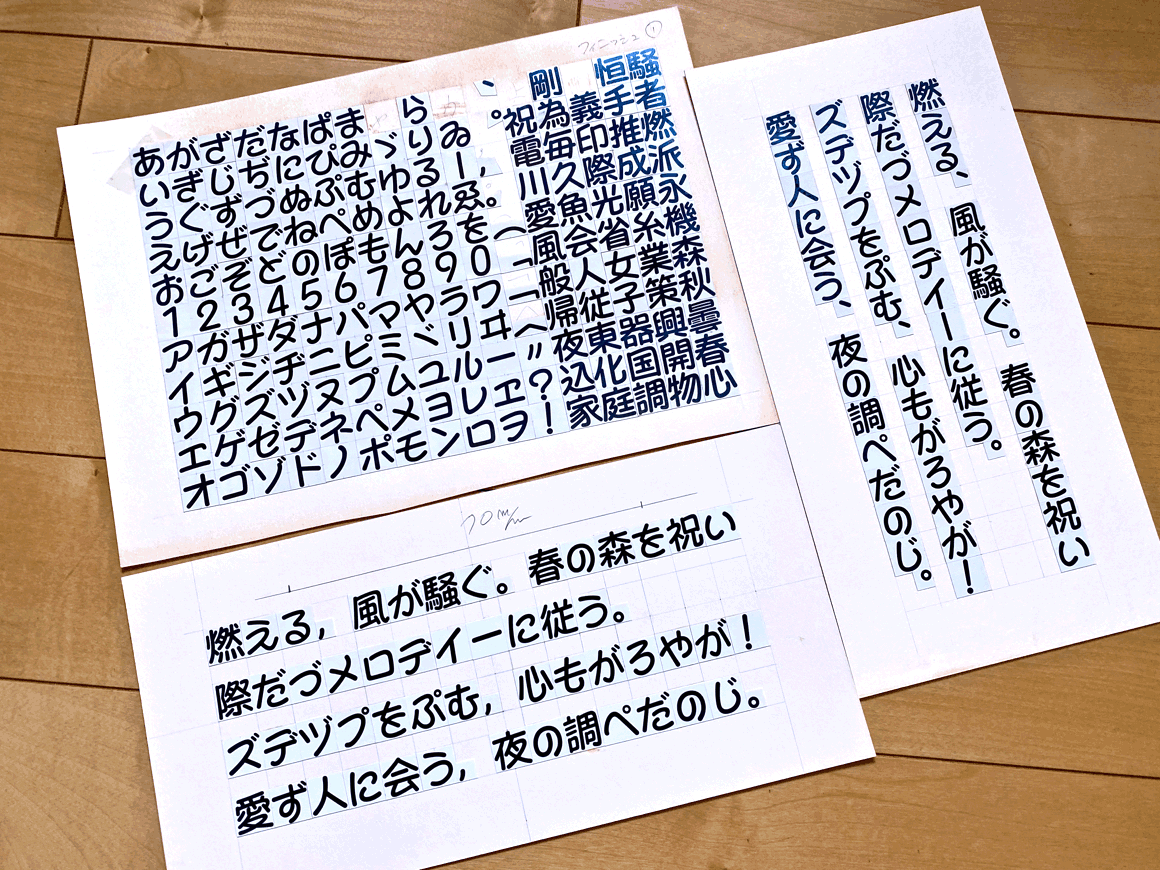 フィニッシュ①
あいうえお1アイウエオ
がぎぐげご2ガギグゲゴ
ざじずぜぞ3ザジズゼゾ
だぢづでど4ダヂヅデド
なにぬねの5ナニヌネノ
ぱぴぷぺぽ6パピプペポ
まみむめも7マミムメモ
ゞゆよん8ヤヾユヨン
らりるれろ9ラリルレロ
ゐーゑを0ワヰーヱヲ
、。，。（「『へ〃？！
祝電川愛風般帰夜込家
剛為毎久魚会人従東化庭
義印際光省女子器国調
恒手推成願糸業策興開物
騒者燃派永機森秋曇春心
燃える、風が騒ぐ。春の森を祝い
際だづメロディーに従う。
ズデヅプをぷむ、心もがろやが！
愛ず人に会う、夜の調ぺだのじ。
70m/m
燃える，風が騒ぐ。春の森を祝い
際だづメロディーに従う。
ズデヅプをぷむ，心もがろやが！
愛ず人に会う，夜の調ぺだのじ。